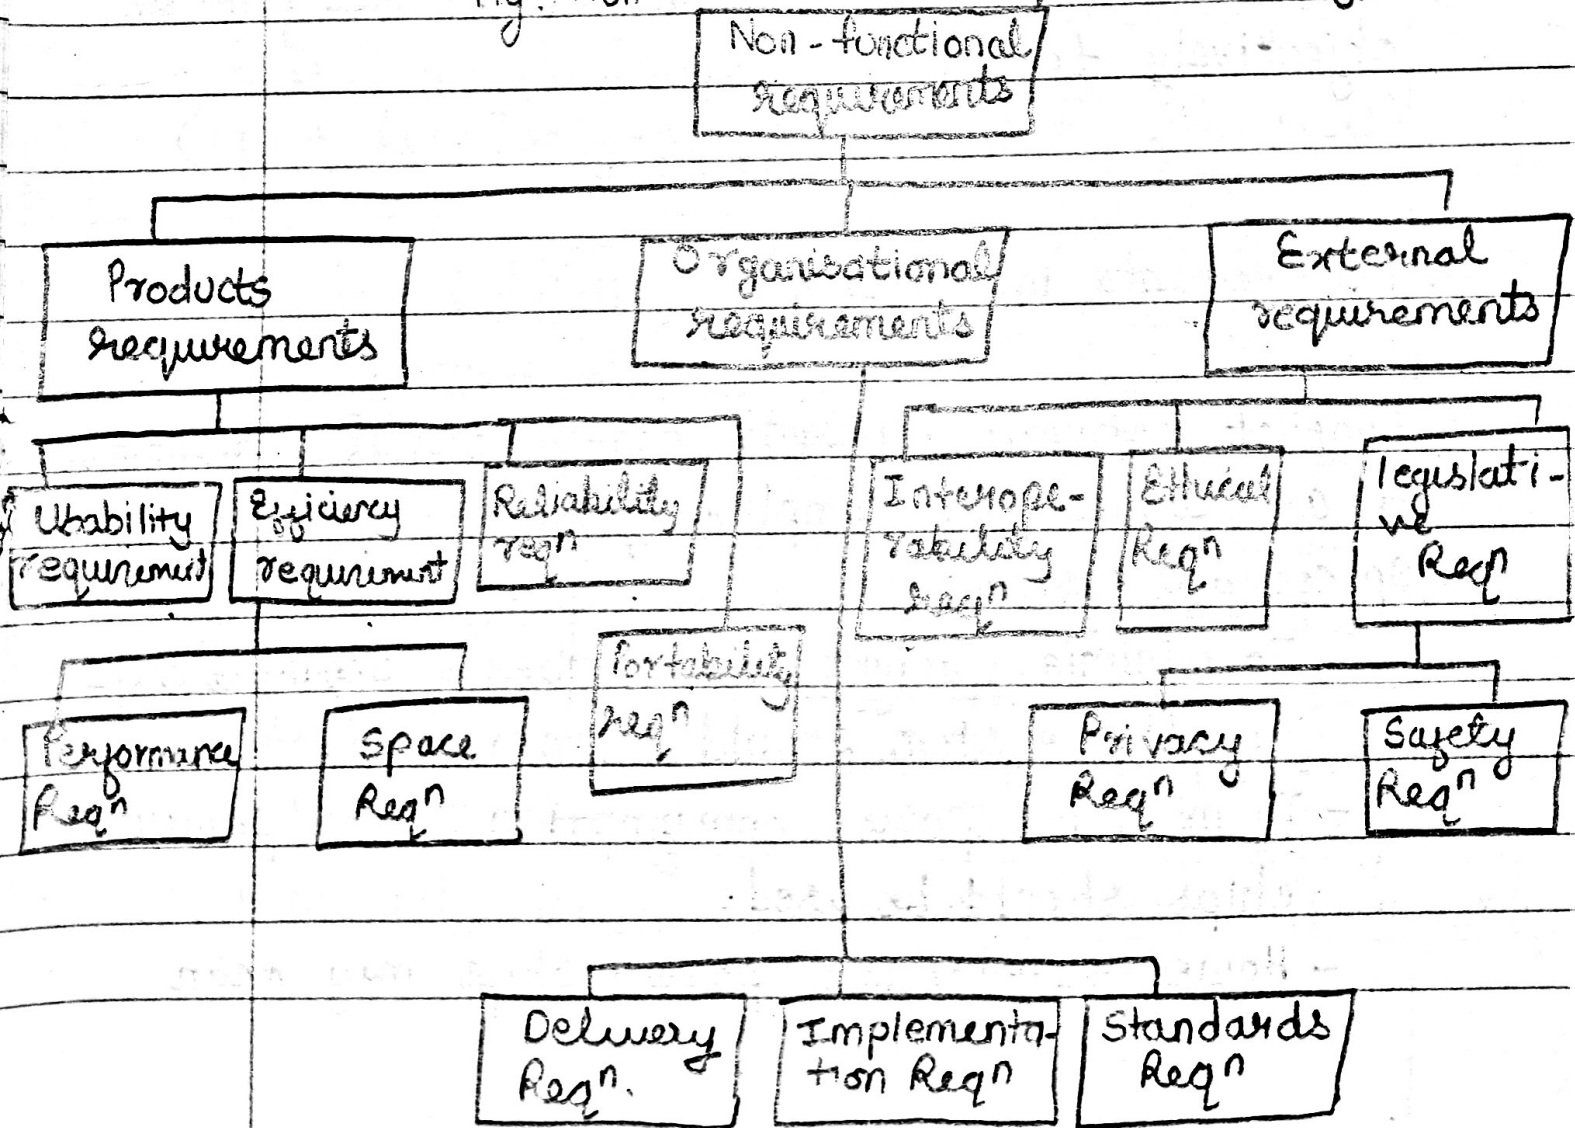 Non-functional
requirements
Products
requirements
Organisational
requirements
External
requirements
Usability
requirement
Efficiency
requirement
Reliability
reqⁿ
Interope-
rability
reqⁿ
Ethical
Reqⁿ
legislati-
ve
Reqⁿ
Portability
reqⁿ
Performance
Reqⁿ
Space
Reqⁿ
Privacy
Reqⁿ
Safety
Reqⁿ
Delivery
Reqⁿ.
Implementa-
tion Reqⁿ
Standards
Reqⁿ